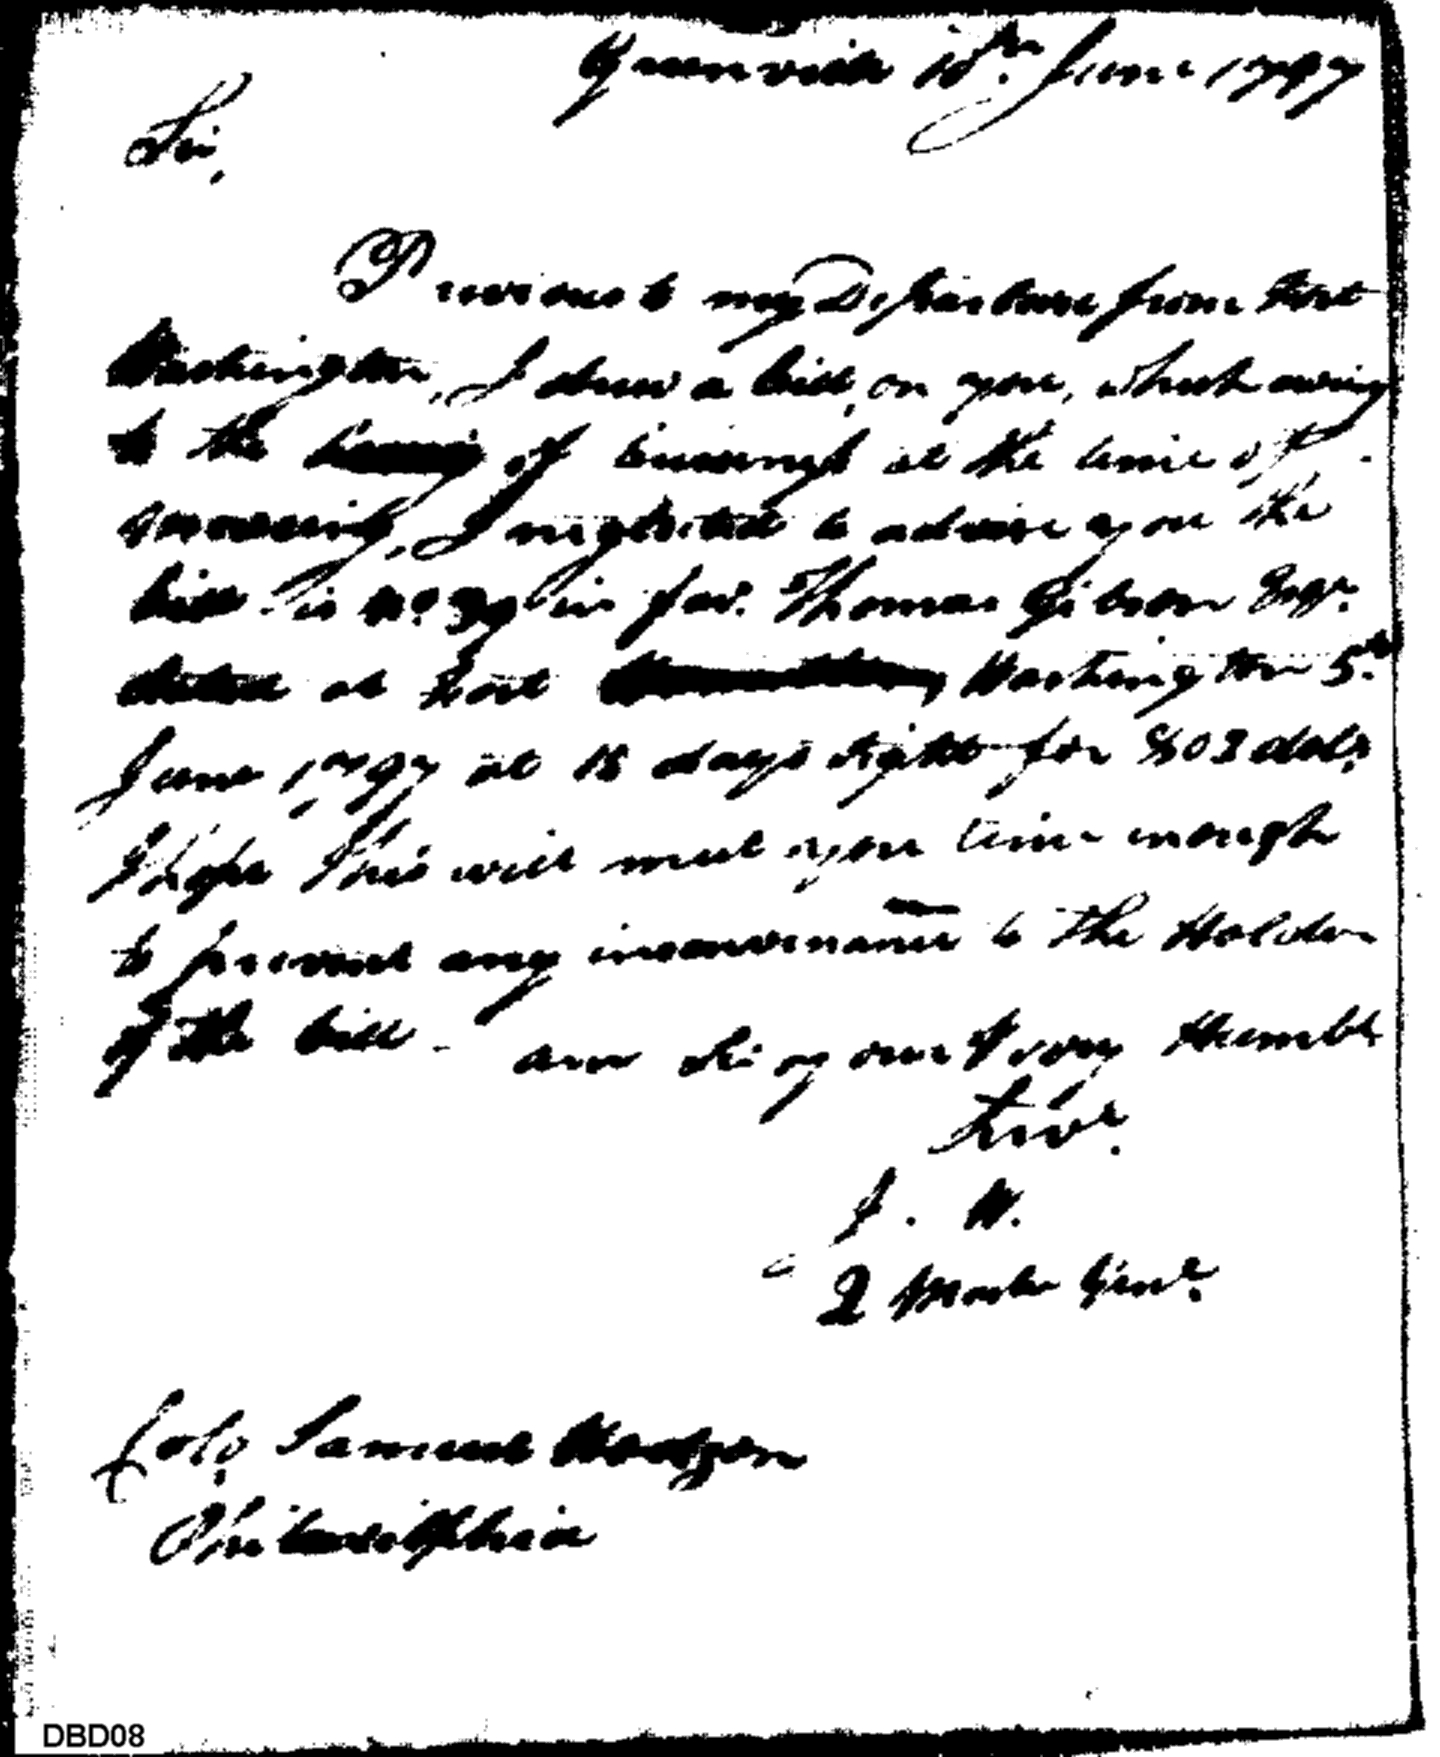 Greenville 10th June 1797
Sir,
Previous to my Departure from Fort
Washington, I drew a bill, on you, which owing
to the of business at the time of
I neglected to advise you the
bill is No. 39 in fav. Thomas Gibson Esqr.
dated at Fort Washington 5th
June 1797 at 15 days sight for 803 dols
I hope this will meet you time enough
to prevent any inconvenience to the Holder
of the bill - am Sir your Very Humble
Servt.
J. W.
Q Mastr Genl.
Colo. Samuel Hodgson
Philadelphia
DBD08